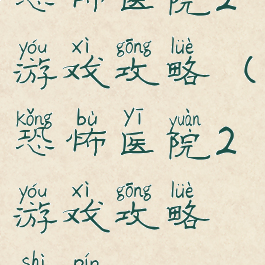 恐怖医院2
yóu xì gōng lüè
游戏攻略（
kǒng bù yī yuàn
恐怖医院2
yóu xì gōng lüè
游戏攻略
shì pín